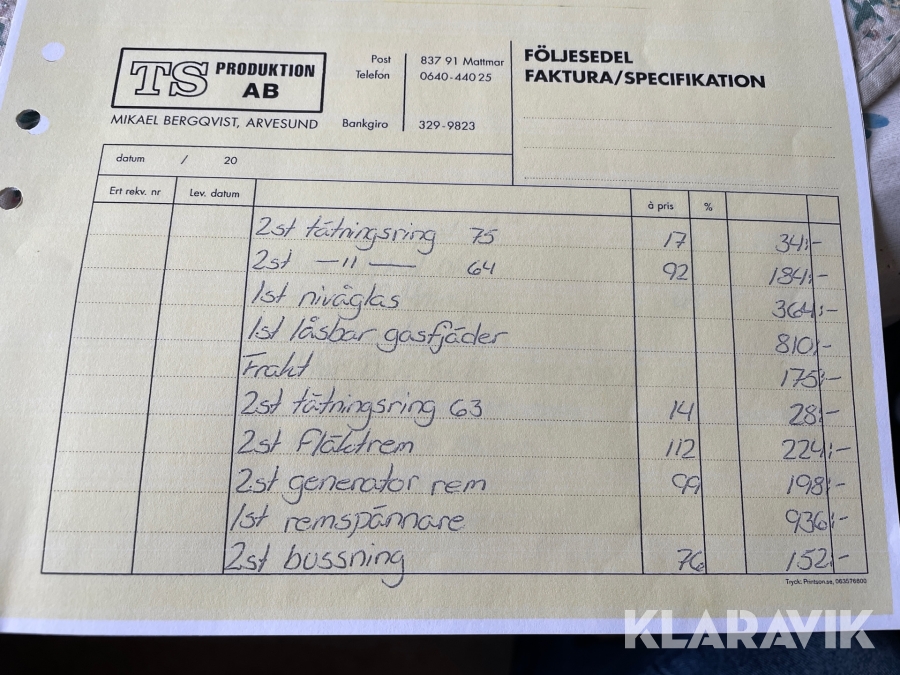 TS PRODUKTION AB
MIKAEL BERGQVIST, ARVESUND
Post 837 91 Mattmar
Telefon 0640-440 25
Bankgiro 329-9823
FÖLJESEDEL
FAKTURA/SPECIFIKATION
datum / 20
Ert rekv. nr Lev. datum à pris %
2st tätningsring 75 17 34:-
2st —11— 64 92 184:-
1st nivåglas 364:-
1st låsbar gasfjäder 810:-
Frakt 175:-
2st tätningsring 63 14 28:-
2st fläktrem 112 224:-
2st generator rem 99 198:-
1st remspännare 936:-
2st bussning 76 152:-
Tryck: Printson.se, 063576800
KLARAVIK